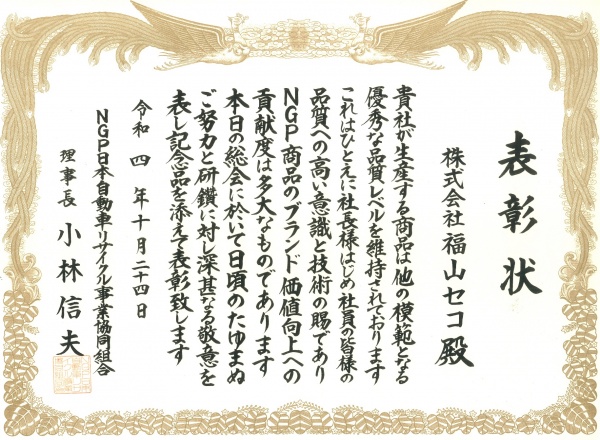 表彰状
株式会社福山セコ殿
貴社が生産する商品は他の模範となる
優秀な品質レベルを維持されております
これはひとえに社長様はじめ社員の皆様の
品質への高い意識と技術の賜であり
NGP商品のブランド価値向上への
貢献度は多大なものであります
本日の総会に於いて日頃のたゆまぬ
ご努力と研鑽に対し深甚なる敬意を
表し記念品を添えて表彰致します
令和四年十月二十四日
NGP日本自動車リサイクル事業協同組合
理事長 小林信夫